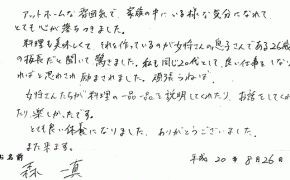 アットホームな雰囲気で、家族の中にいる様な気分になれて、
とても心が落ちつきました。
料理も美味しくて、それを作っているのが女将さんの息子さんである26歳
の板長だと聞いて驚きました。私も同じ20代として、良い仕事をしなけ
ればと思わされ励まされました。頑張らねば。
女将さんたちが料理の一品一品を説明してくれたり、お話をしてくれ
たり、楽しかったです。
とても良い休養になりました。ありがとうございました。
また来ます。
平成 20年 8月26日
お名前
森 一真